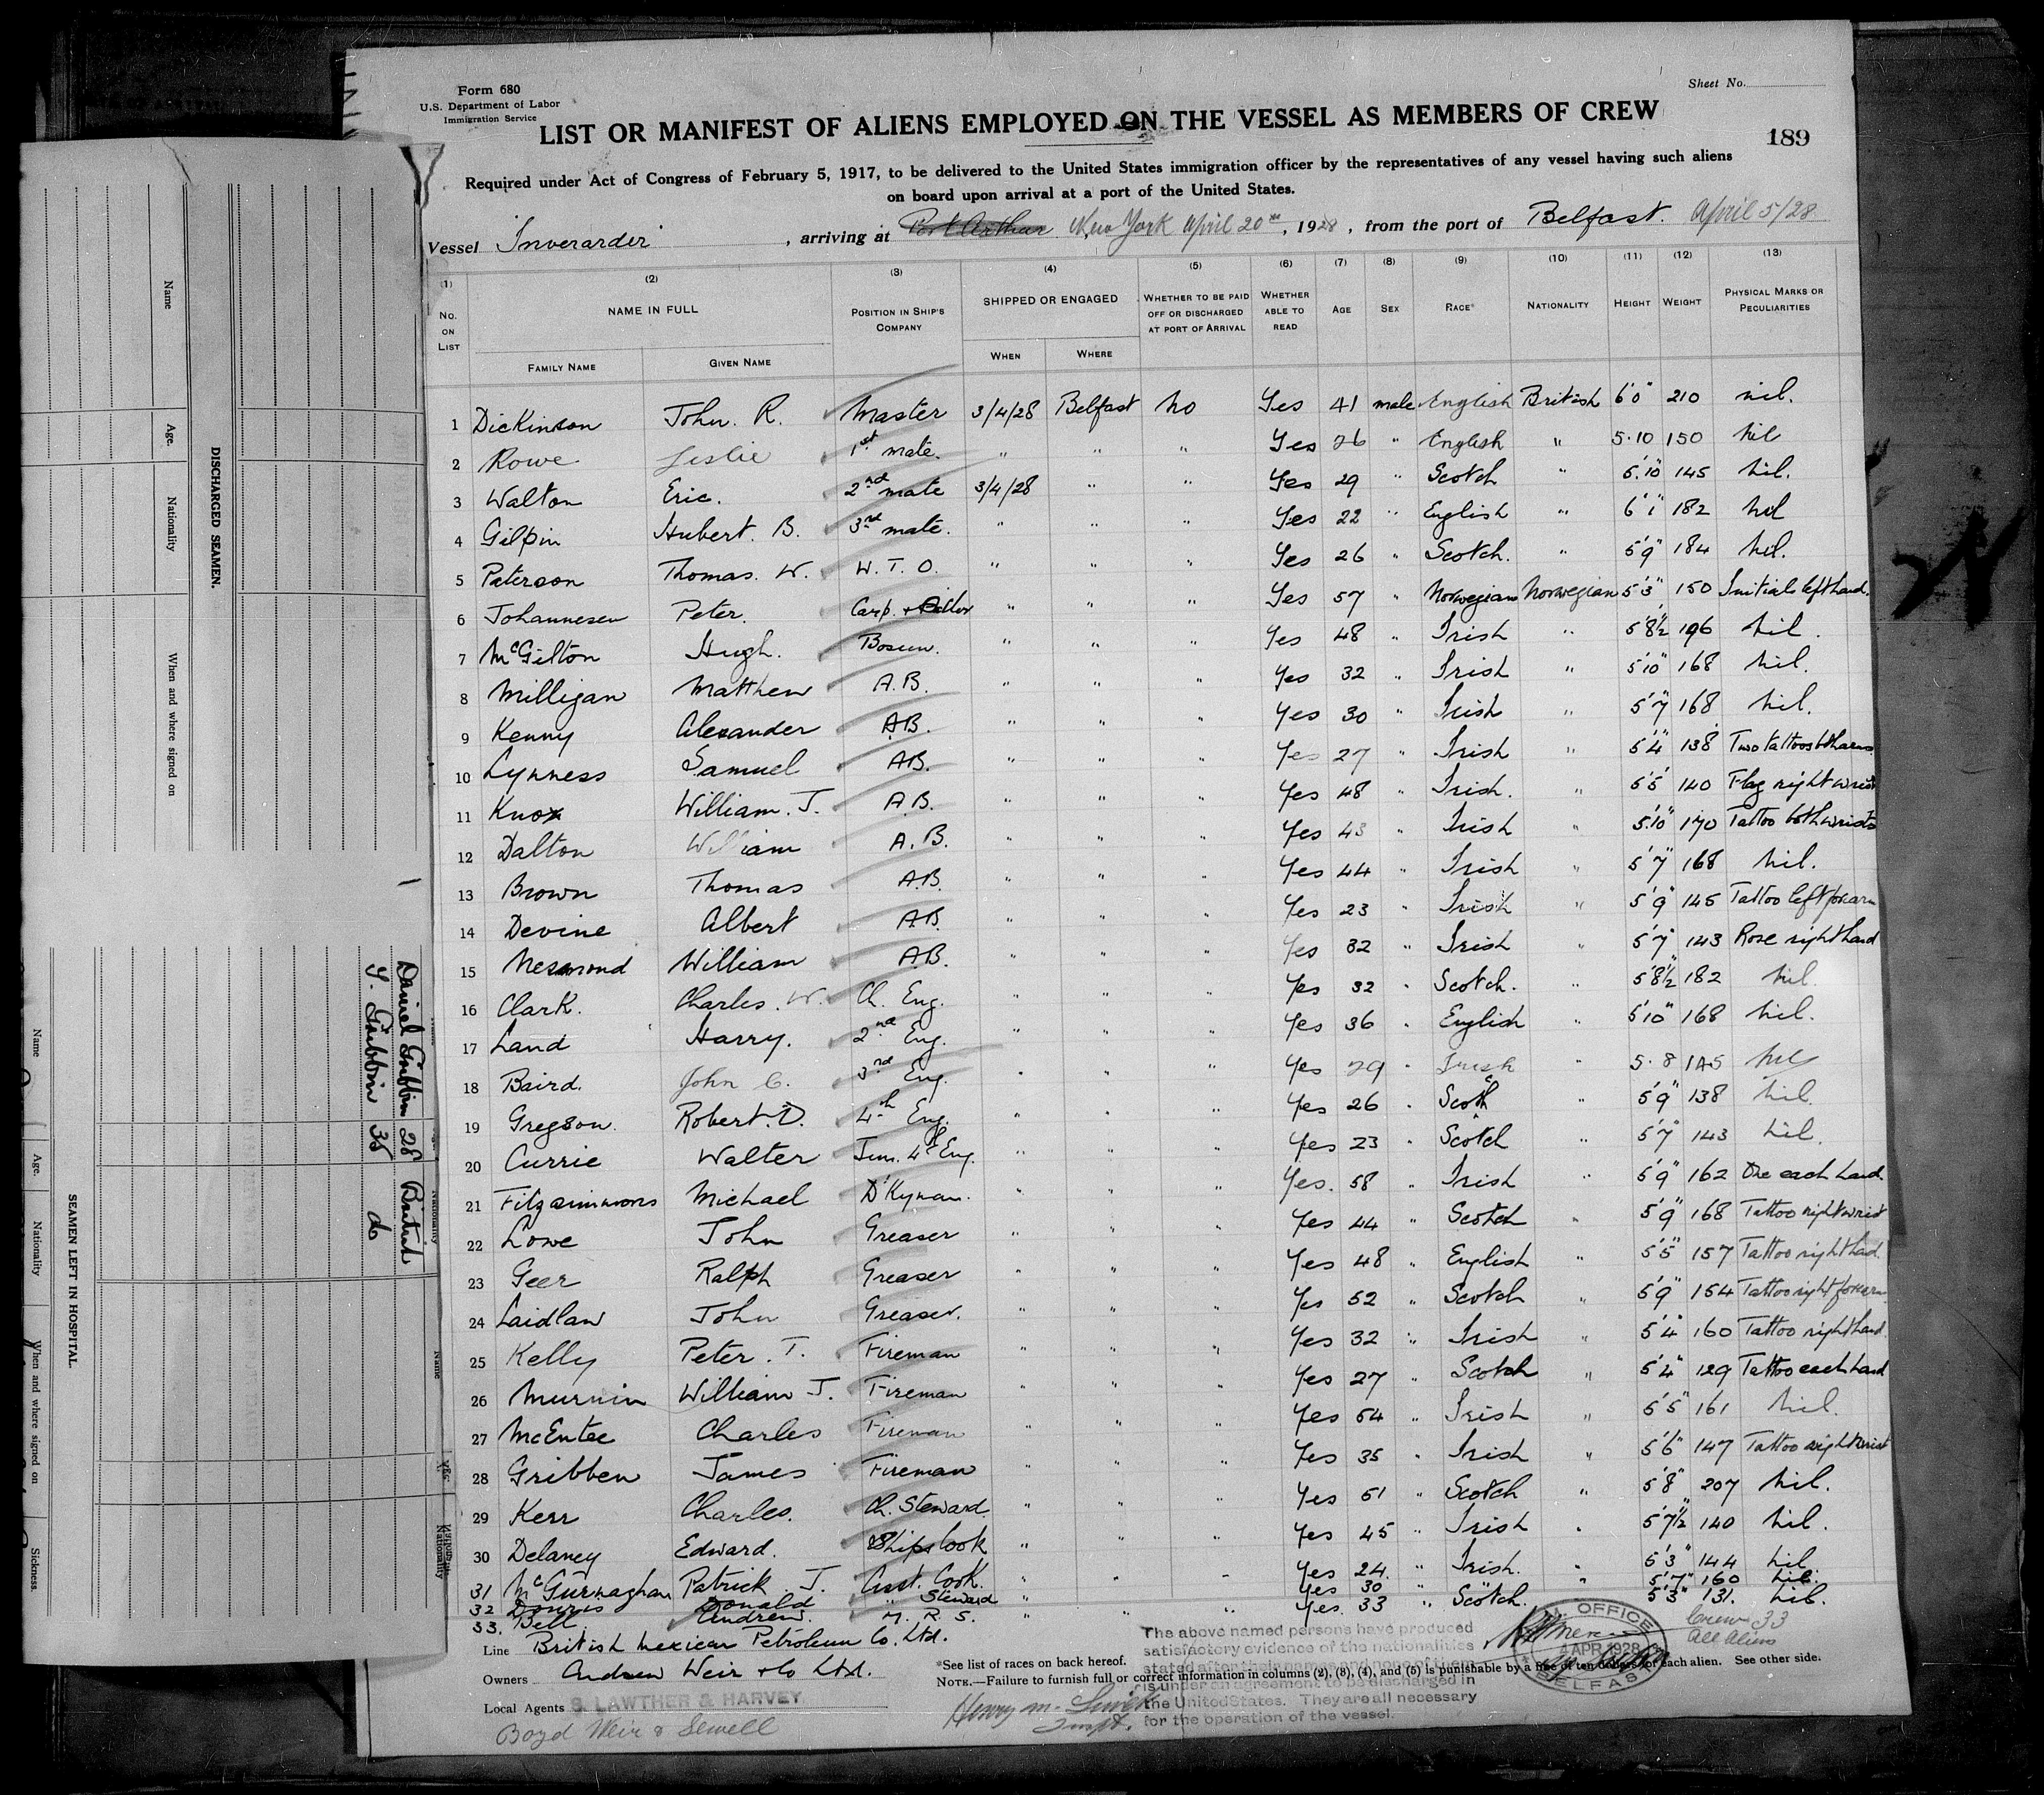 Form 680
U.S. Department of Labor
Immigration Service
Sheet No.
LIST OR MANIFEST OF ALIENS EMPLOYED ON THE VESSEL AS MEMBERS OF CREW
189
Required under Act of Congress of February 5, 1917, to be delivered to the United States immigration officer by the representatives of any vessel having such aliens
on board upon arrival at a port of the United States.
Vessel "Inverarder", arriving at Port Arthur New York April 20th, 1928, from the port of Belfast. April 5/28
(1) (2) (3) (4) (5) (6) (7) (8) (9) (10) (11) (12) (13)
No. on List NAME IN FULL Position in Ship's Company SHIPPED OR ENGAGED Whether to be paid off or discharged at port of arrival Whether able to read Age Sex Race* Nationality Height Weight Physical Marks or Peculiarities
Family Name Given Name When Where
1 Dickinson John. R. Master 3/4/28 Belfast No Yes 41 male English British 6'0" 210 nil.
2 Rowe Leslie 1st mate. " " " Yes 26 " English " 5.10 150 nil
3 Walton Eric. 2nd mate 3/4/28 " " Yes 29 " Scotch " 5'.10" 145 nil.
4 Gilpin Hubert. B. 3rd mate. " " " Yes 22 " English " 6'1" 182 nil
5 Paterson Thomas. W. W. T. O. " " " Yes 26 " Scotch. " 5'9" 184 nil.
6 Johannesen Peter. Carp. + " " " Yes 57 " Norwegian Norwegian 5'3" 150 Initials left hand.
7 McGilton Hugh. Bosun. " " Yes 48 " Irish " 5'8½" 196 nil.
8 Milligan Matthew A.B. " " " Yes 32 " Irish " 5'10" 168 nil.
9 Kenny Alexander A.B. " " " Yes 30 " Irish " 5'7" 168 nil.
10 Lynness Samuel AB. " " " Yes 27 " Irish " 5'4" 138 Two tattoos both arms
11 Knox William. J. A.B. " " " Yes 48 " Irish. " 5'5" 140 Flag right wrist
12 Dalton William A.B. " " " Yes 43 " Irish " 5'.10" 170 Tattoo both wrists
13 Brown Thomas A.B. " " " Yes 44 " Irish " 5'7" 168 nil.
14 Devine Albert A.B. " " " Yes 23 " Irish " 5'9" 145 Tattoo left forearm
15 William A.B. " " " Yes 32 " Irish " 5'7" 143 Rose right hand
16 Clark. Charles. W. Ch. Eng. " " " Yes 32 " Scotch. " 5'8½" 182 nil.
17 Land Harry. 2nd Eng. " " " Yes 36 " English " 5'10" 168 nil.
18 Baird. John C. 3rd Eng. " " " Yes 29 " Irish " 5.8 145 nil
19 Gregson. Robert. D. 4th Eng. " " " Yes 26 " Scotch " 5'9" 138 nil.
20 Currie Walter Jun. 4th Eng. " " " Yes 23 " Scotch " 5'7" 143 nil.
21 Fitzsimmons Michael D'Kyman. " " " Yes. 58 " Irish " 5'9" 162 One each hand.
22 Lowe John Greaser " " " Yes 44 " Scotch " 5'9" 168 Tattoo right wrist
23 Geer Ralph Greaser " " " Yes 48 " English " 5'5" 157 Tattoo right hand.
24 Laidlaw John Greaser. " " " Yes 52 " Scotch " 5'9" 154 Tattoo right forearm
25 Kelly Peter. T. Fireman " " " Yes 32 " Irish " 5'4" 160 Tattoo right hand.
26 Murnin William J. Fireman " " " Yes 27 " Scotch " 5'4" 129 Tattoo each hand
27 McEntee Charles Fireman " " " Yes 54 " Irish " 5'5" 161 nil.
28 Gribben James Fireman " " " Yes 35 " Irish " 5'6" 147 Tattoo right wrist
29 Kerr Charles. Ch. Steward. " " " Yes 51 " Scotch " 5'8" 207 nil.
30 Delaney Edward. Ships Cook " " " Yes 45 " Irish " 5'7½" 140 nil.
31 McGurnaghan Patrick J. Asst. Cook. " " " Yes 24. " Irish. " 5'3" 144 nil
32 Donald " Steward Yes 30 " " 5'7" 160 nil.
33. Bell Andrew. M. R. S. " " " Yes. 33 " Scotch. 5'3" 131. nil.
Line British Mexican Petroleum Co. Ltd.
Owners Andrew Weir & Co Ltd.
Local Agents S. LAWTHER & HARVEY
Boyd Weir & Sewell
*See list of races on back hereof.
Note.—Failure to furnish full or correct information in columns (2), (8), (4), and (5) is punishable by a fine of ten dollars for each alien. See other side.
The above named persons have produced
satisfactory evidence of the nationalities
stated after their names and none of them
is under an agreement to be discharged in
the United States. They are all necessary
for the operation of the vessel.
Henry M.
Inspt.
OFFICE
APR 1928
BELFAST
Crew 33
All Aliens
DISCHARGED SEAMEN.
Name Age. Nationality When and where signed on
SEAMEN LEFT IN HOSPITAL.
Name Age. Nationality When and where signed on Sickness.
Daniel Gribbin 28 British
S. Gribbin 35 do